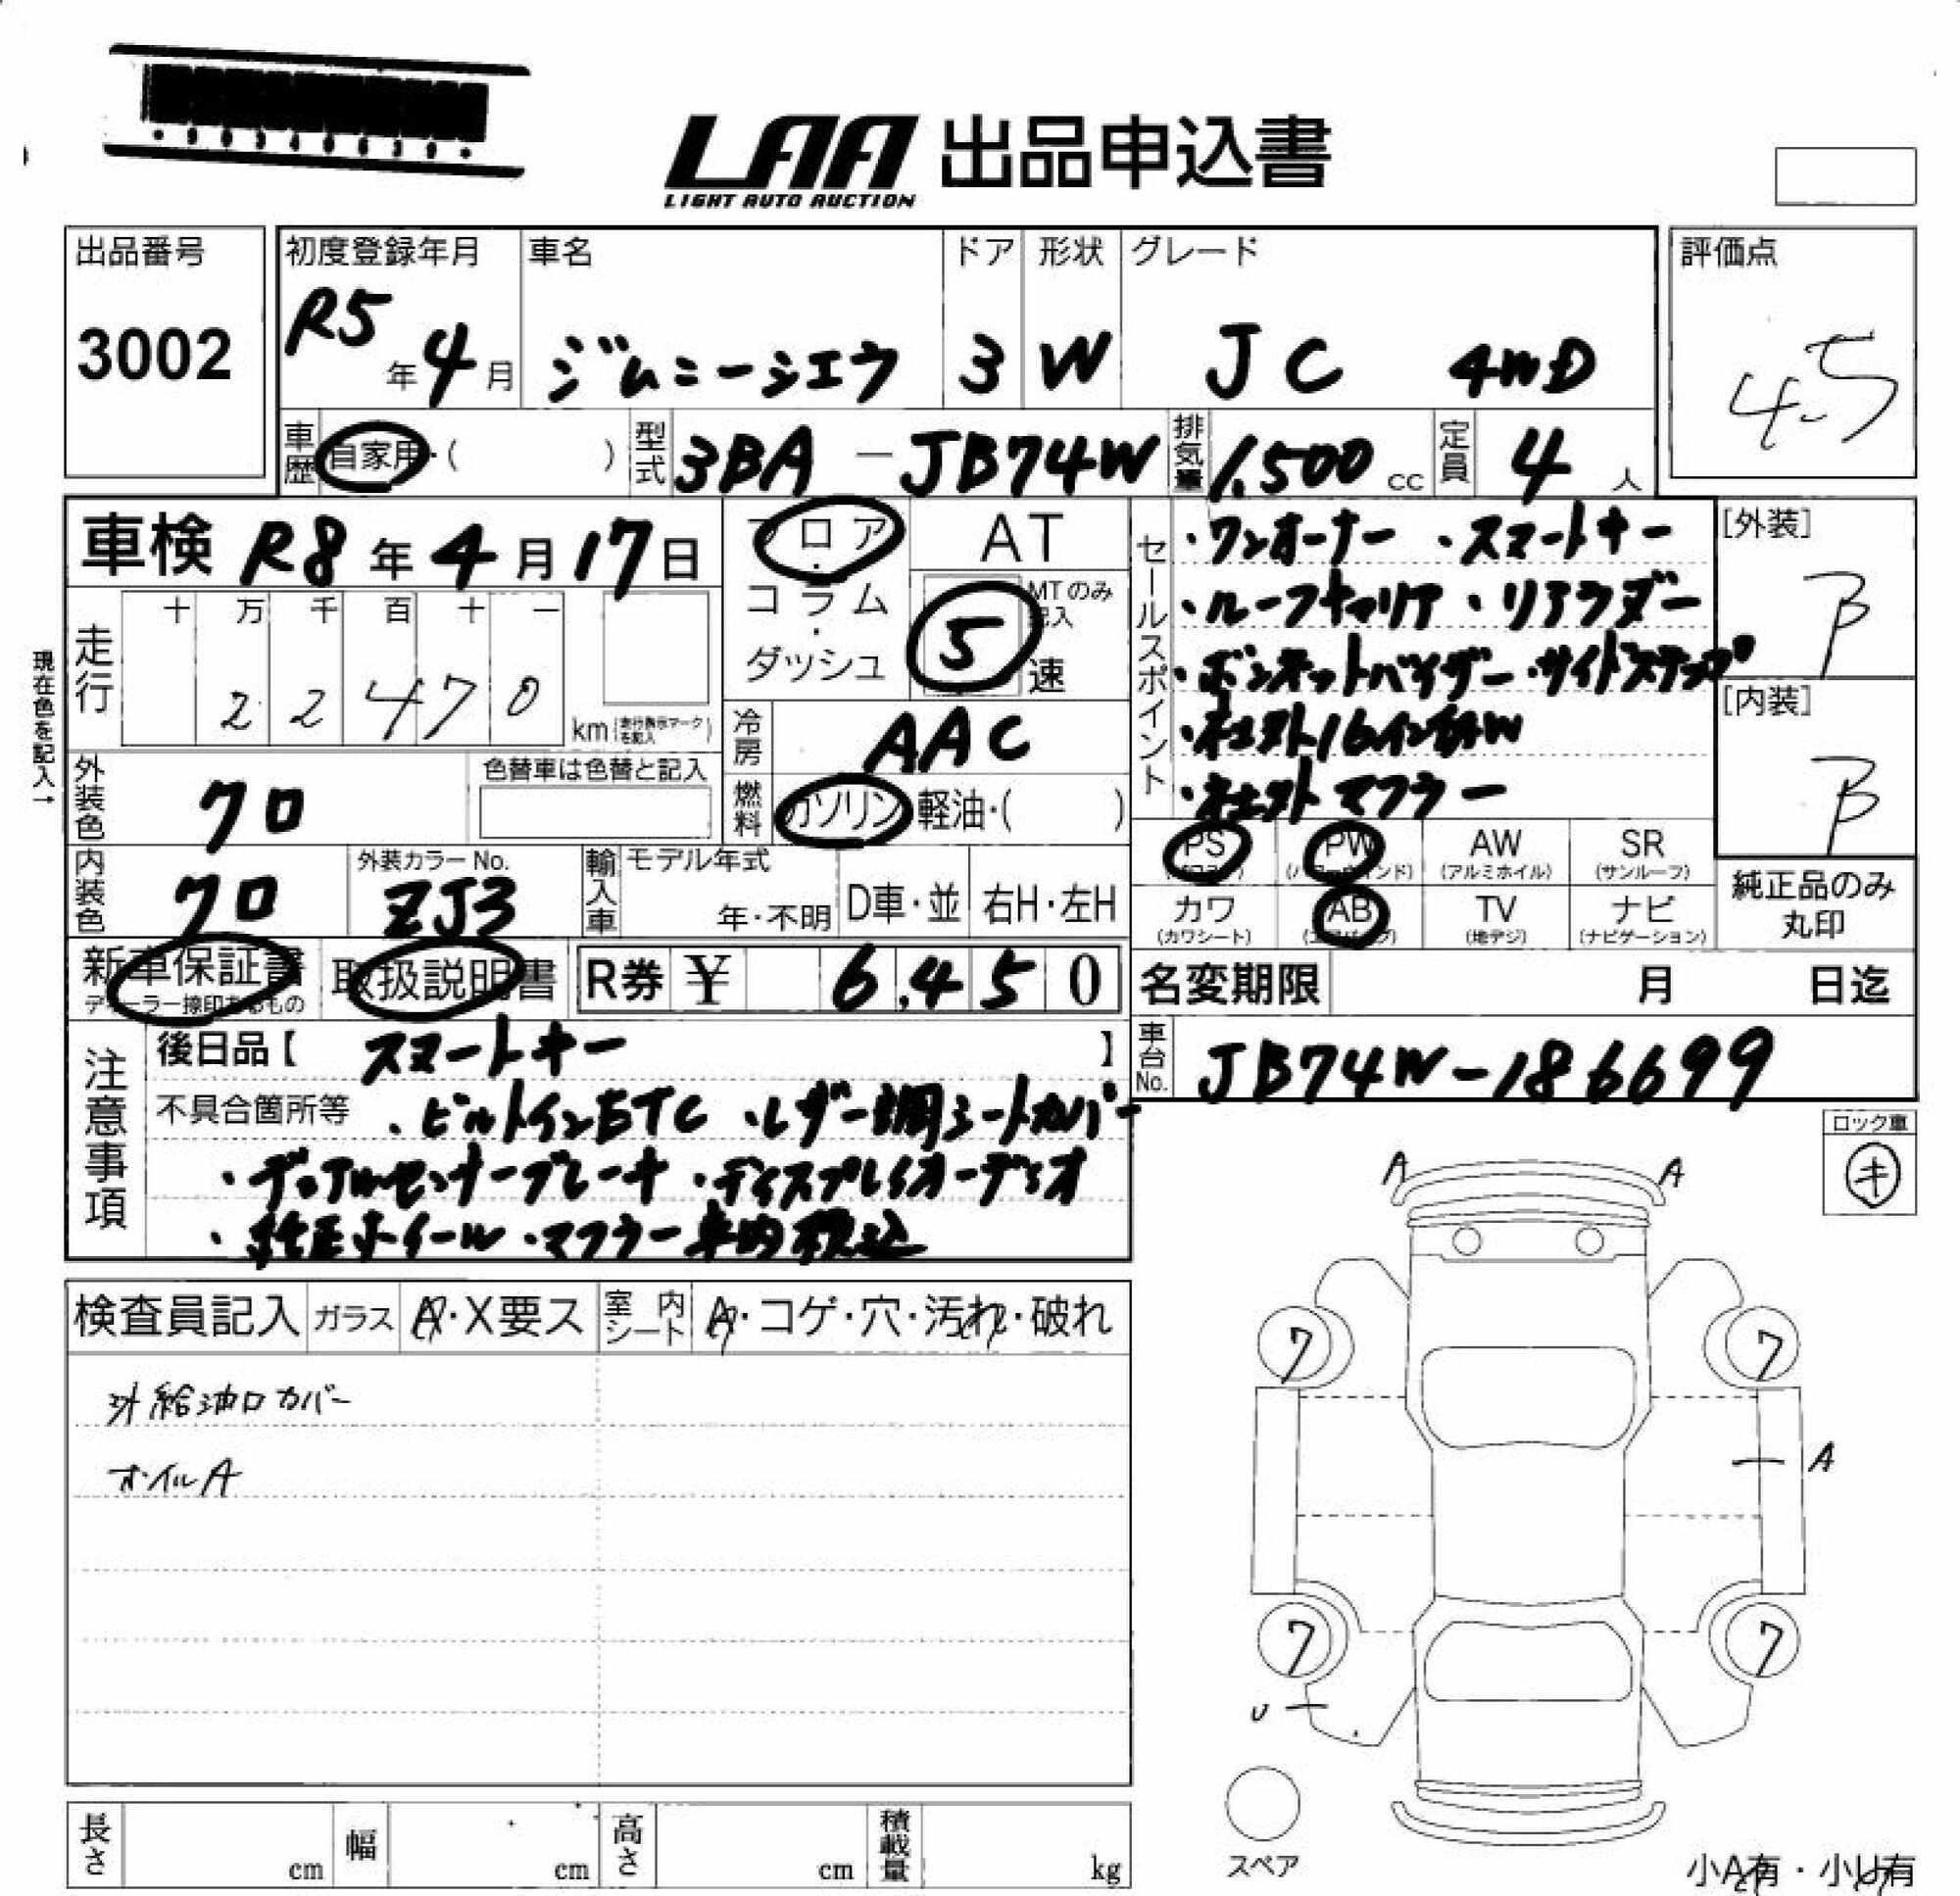 LAA 出品申込書
LIGHT AUTO AUCTION
出品番号
3002
初度登録年月
R5年4月
車名
ジムニーシエラ
ドア
3
形状
W
グレード
JC 4WD
評価点
4.5
車歴
自家用・( )
型式
3BA-JB74W
排気量
1,500cc
定員
4人
車検 R8年4月17日
フロア・コラム・ダッシュ
AT
MTのみ記入
5速
セールスポイント
・ワンオーナー ・スマートキー
・ルーフキャリア ・リアラダー
・ボンネットバイザー ・サイドステップ
・社外16インチAW
・社外マフラー
[外装]
B
[内装]
B
現在色を記入→
走行
十 万 千 百 十 一
2 2 4 7 0
km(走行表示マークを記入)
冷房
AAC
外装色
クロ
色替車は色替と記入
燃料
ガソリン・軽油・( )
PS
(パワステ)
PW
(パワーウィンド)
AW
(アルミホイル)
SR
(サンルーフ)
内装色
クロ
外装カラーNo.
ZJ3
輸入車
モデル年式
年・不明
D車・並
右H・左H
カワ
(カワシート)
AB
(エアバッグ)
TV
(地デジ)
ナビ
(ナビゲーション)
純正品のみ
丸印
新車保証書
ディーラー捺印あるもの
取扱説明書
R券 ¥ 6,450
名変期限 月 日迄
注意事項
後日品【 スマートキー 】
車台No.
JB74W-186699
不具合箇所等 ・ビルトインETC ・レザー調シートカバー
・デュアルセンサーブレーキ ・ディスプレイオーディオ
・純正ホイール・マフラー車内積込
ロック車
キ
検査員記入
ガラス
A・X要ス
室内シート
A・コゲ・穴・汚れ・破れ
外給油口カバー
オイルA
A A
7 7
A
7 7
U
スペア
小A有・小U有
長さ cm
幅 cm
高さ cm
積載量 kg